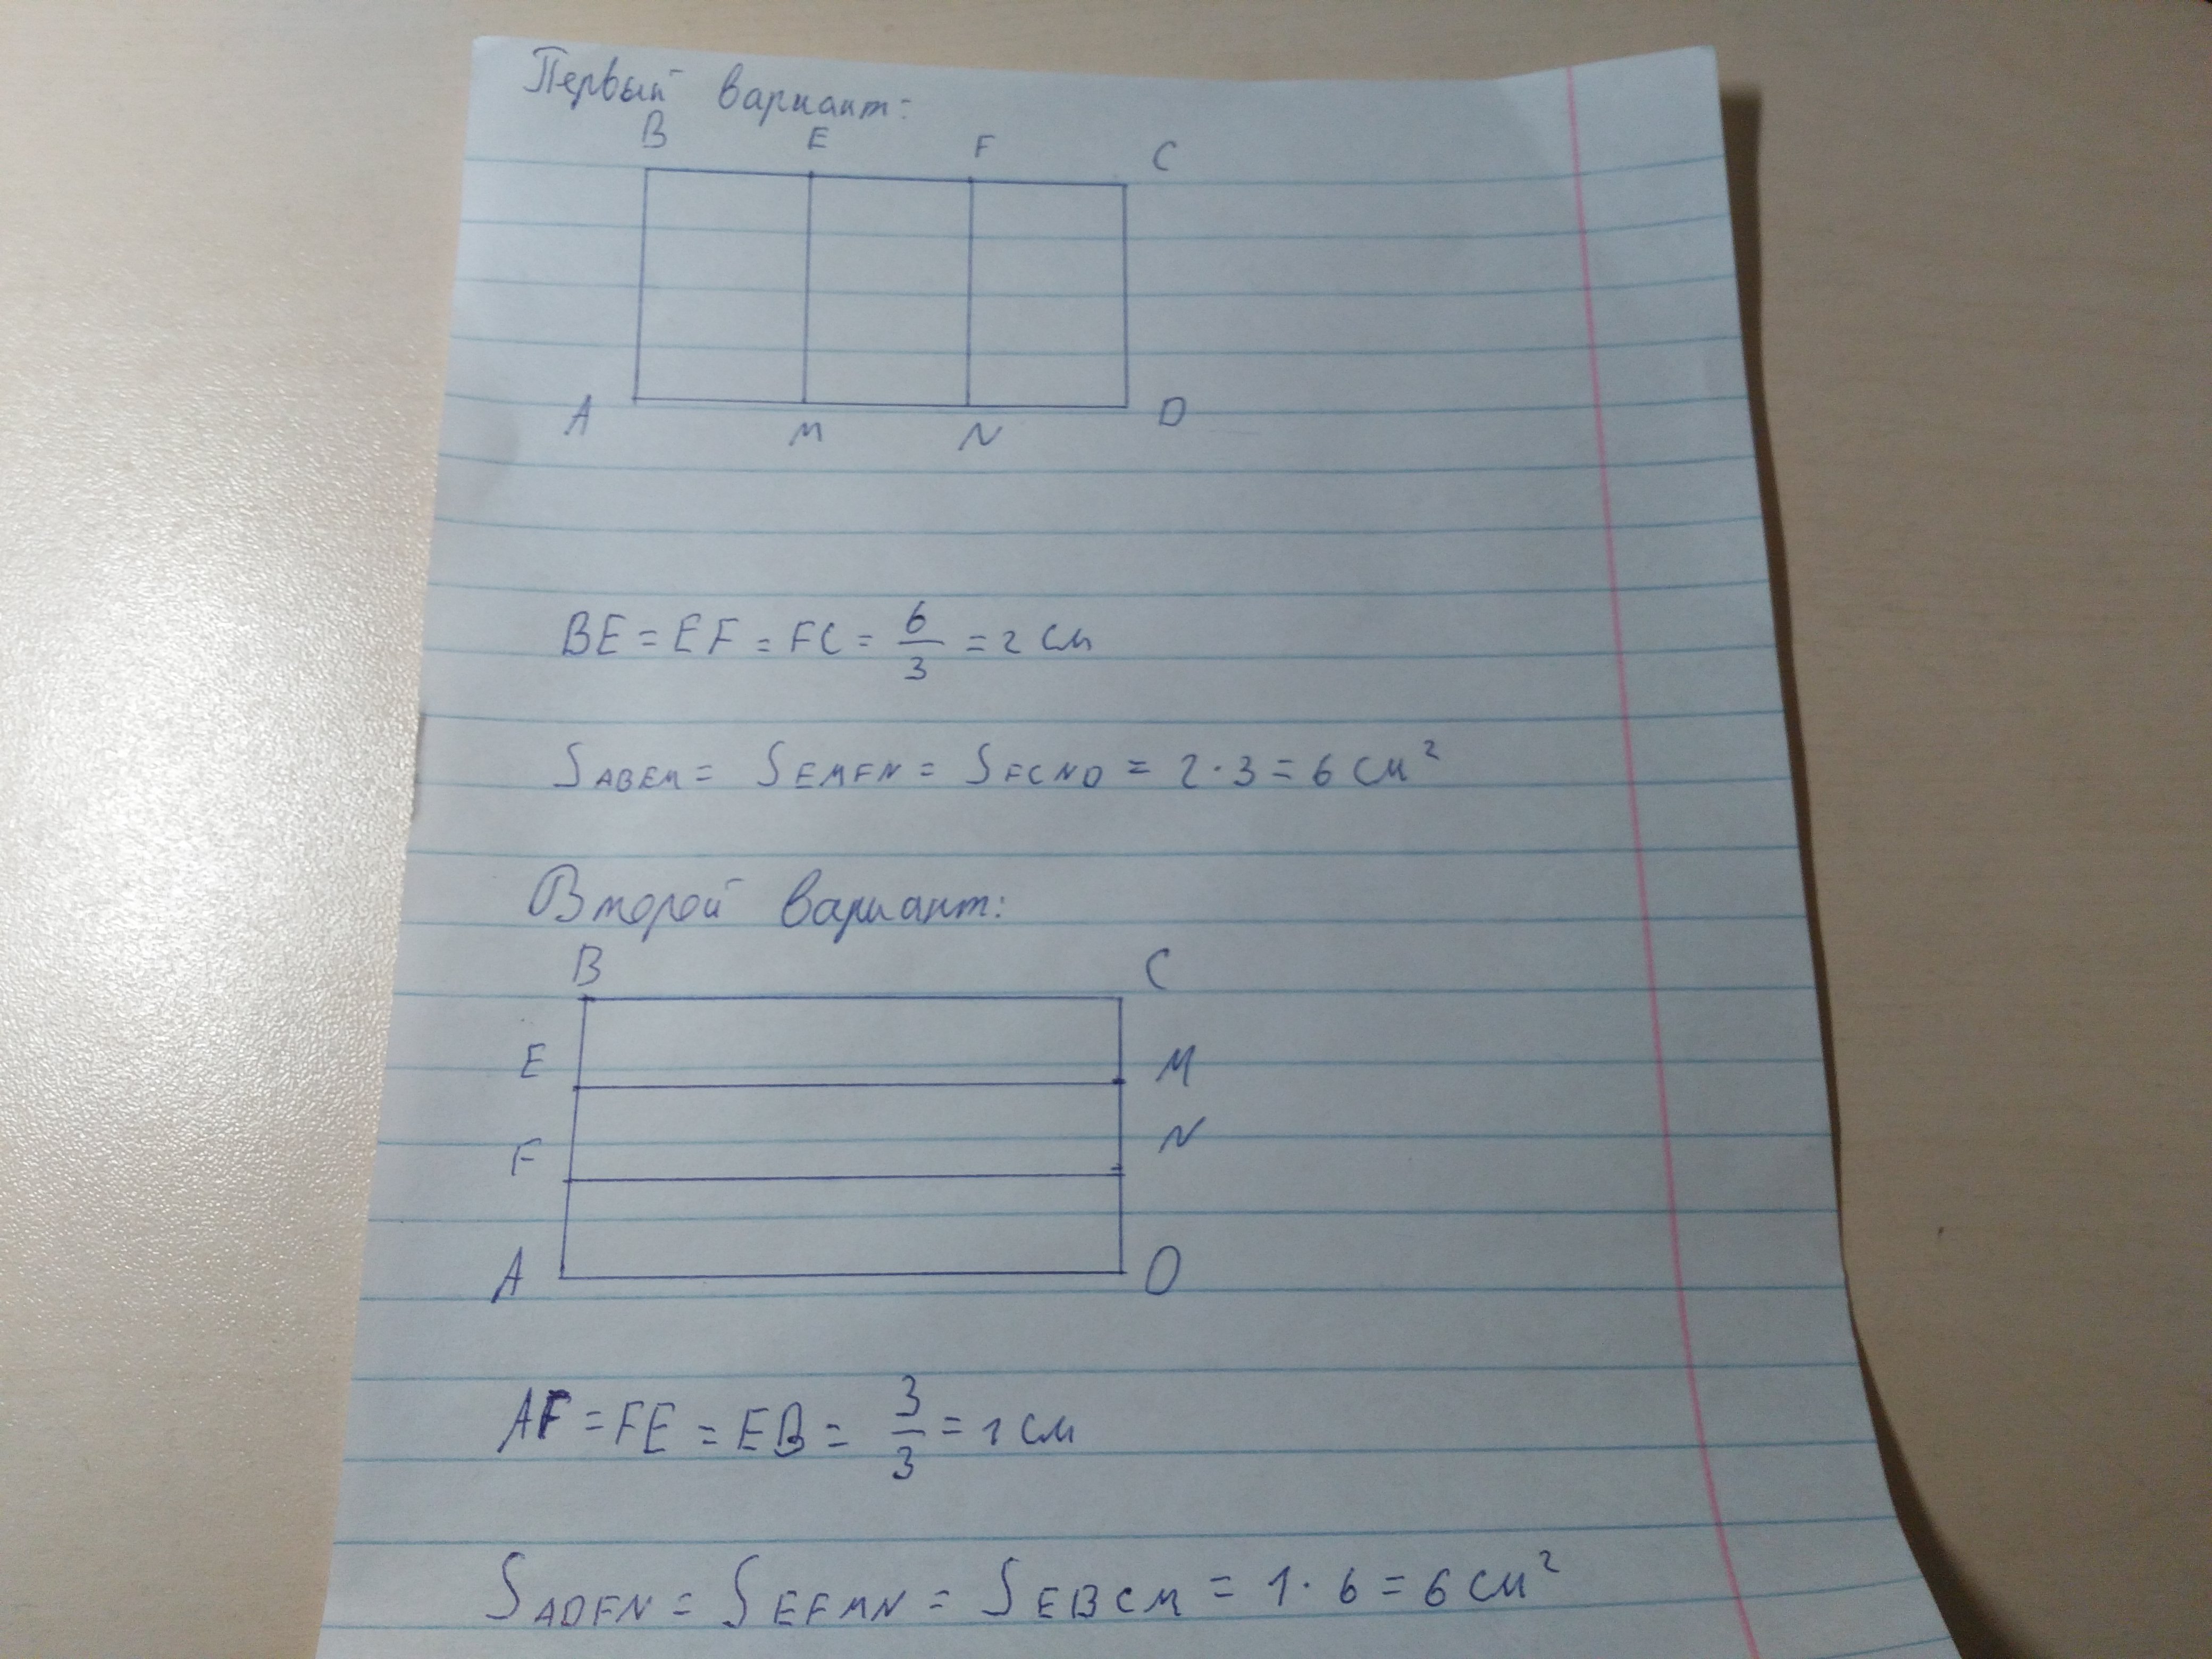 Первый вариант:
B E F C
A M N D
BE = EF = FC = 6/3 = 2 см
S ABEM = S EMFN = S FCND = 2 · 3 = 6 см²
Второй вариант:
B C
E M
F N
A D
AF = FE = EB = 3/3 = 1 см
S ADFN = S EFMN = S EBCM = 1 · 6 = 6 см²